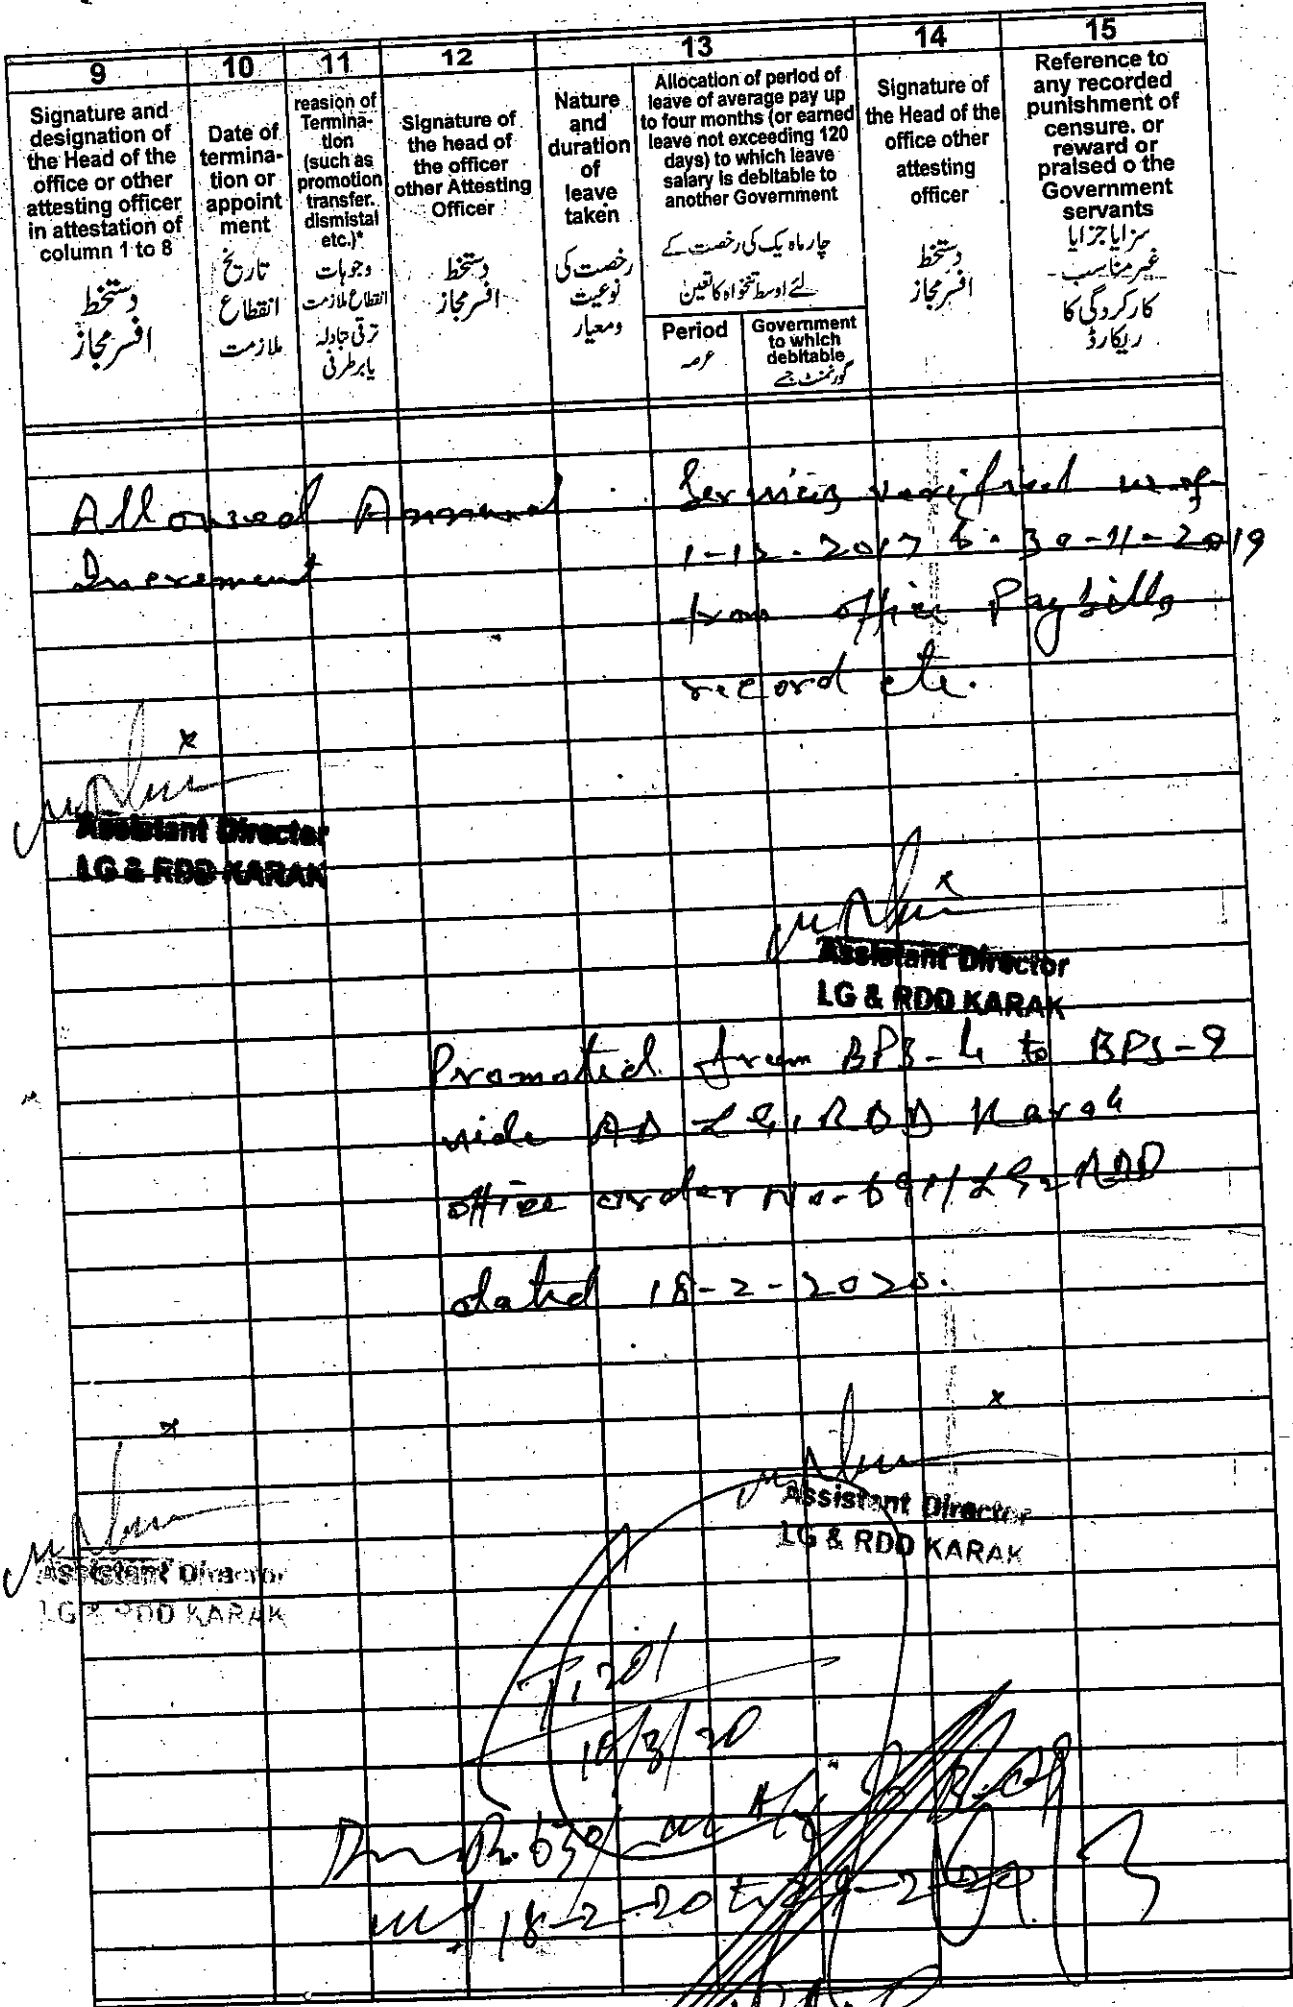 9
10
11
12
13
14
15
Signature and
designation of
the Head of the
office or other
attesting officer
in attestation of
column 1 to 8
دستخط
افسر مجاز
Date of
termina-
tion or
appoint
ment
تاریخ
انقطاع
ملازمت
reasion of
Termina-
tion
(such as
promotion
transfer.
dismistal
etc.)*
وجوہات
انقطاع ملازمت
ترقی تبادلہ
یا برطرفی
Signature of
the head of
the officer
other Attesting
Officer
دستخط
افسر مجاز
Nature
and
duration
of
leave
taken
رخصت کی
نوعیت
ومعیار
Allocation of period of
leave of average pay up
to four months (or earned
leave not exceeding 120
days) to which leave
salary is debitable to
another Government
چار ماہ یک کی رخصت کے
لئے اوسط تنخواہ کا تعین
Period
عرصہ
Government
to which
debitable
گورنمنٹ جسے
Signature of
the Head of the
office other
attesting
officer
دستخط
افسر مجاز
Reference to
any recorded
punishment of
censure. or
reward or
praised o the
Government
servants
سزا یا جزا یا
غیر مناسب
کارکردگی کا
ریکارڈ
Allowed Annual
Increment
Services verified w.e.f.
1-12-2017 to 30-11-2019
from office Paybills
record etc.
Assistant Director
LG & RDD KARAK
Assistant Director
LG & RDD KARAK
Promoted from BPS-4 to BPS-9
vide AD LG, RDD Karak
office order No.
dated 18-2-2020.
Assistant Director
LG & RDD KARAK
Assistant Director
LG & RDD KARAK
18-2-20